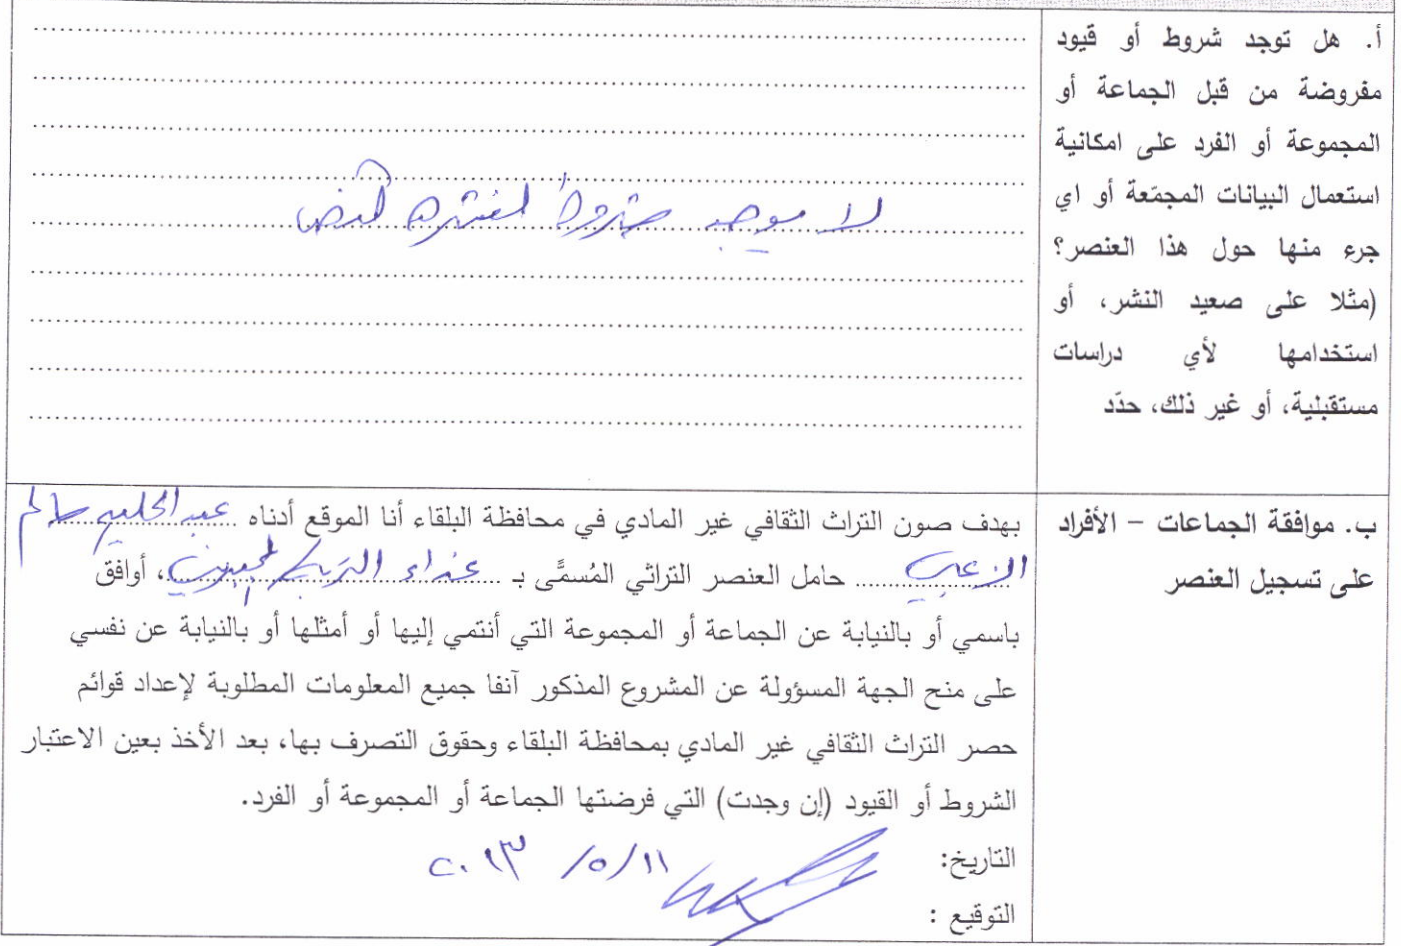 أ. هل توجد شروط أو قيود
مفروضة من قبل الجماعة أو
المجموعة أو الفرد على امكانية
استعمال البيانات المجمّعة أو اي
جرء منها حول هذا العنصر؟
(مثلا على صعيد النشر، أو
استخدامها لأي دراسات
مستقبلية، أو غير ذلك، حدّد
لا يوجد شروط
ب. موافقة الجماعات - الأفراد
على تسجيل العنصر
بهدف صون التراث الثقافي غير المادي في محافظة البلقاء أنا الموقع أدناه عبد الحليم سالم
الزعبي حامل العنصر التراثي المُسمًّى بـ غناء، أوافق
باسمي أو بالنيابة عن الجماعة أو المجموعة التي أنتمي إليها أو أمثلها أو بالنيابة عن نفسي
على منح الجهة المسؤولة عن المشروع المذكور آنفا جميع المعلومات المطلوبة لإعداد قوائم
حصر التراث الثقافي غير المادي بمحافظة البلقاء وحقوق التصرف بها، بعد الأخذ بعين الاعتبار
الشروط أو القيود (إن وجدت) التي فرضتها الجماعة أو المجموعة أو الفرد.
التاريخ: ١١/٥/٢٠١٣
التوقيع :